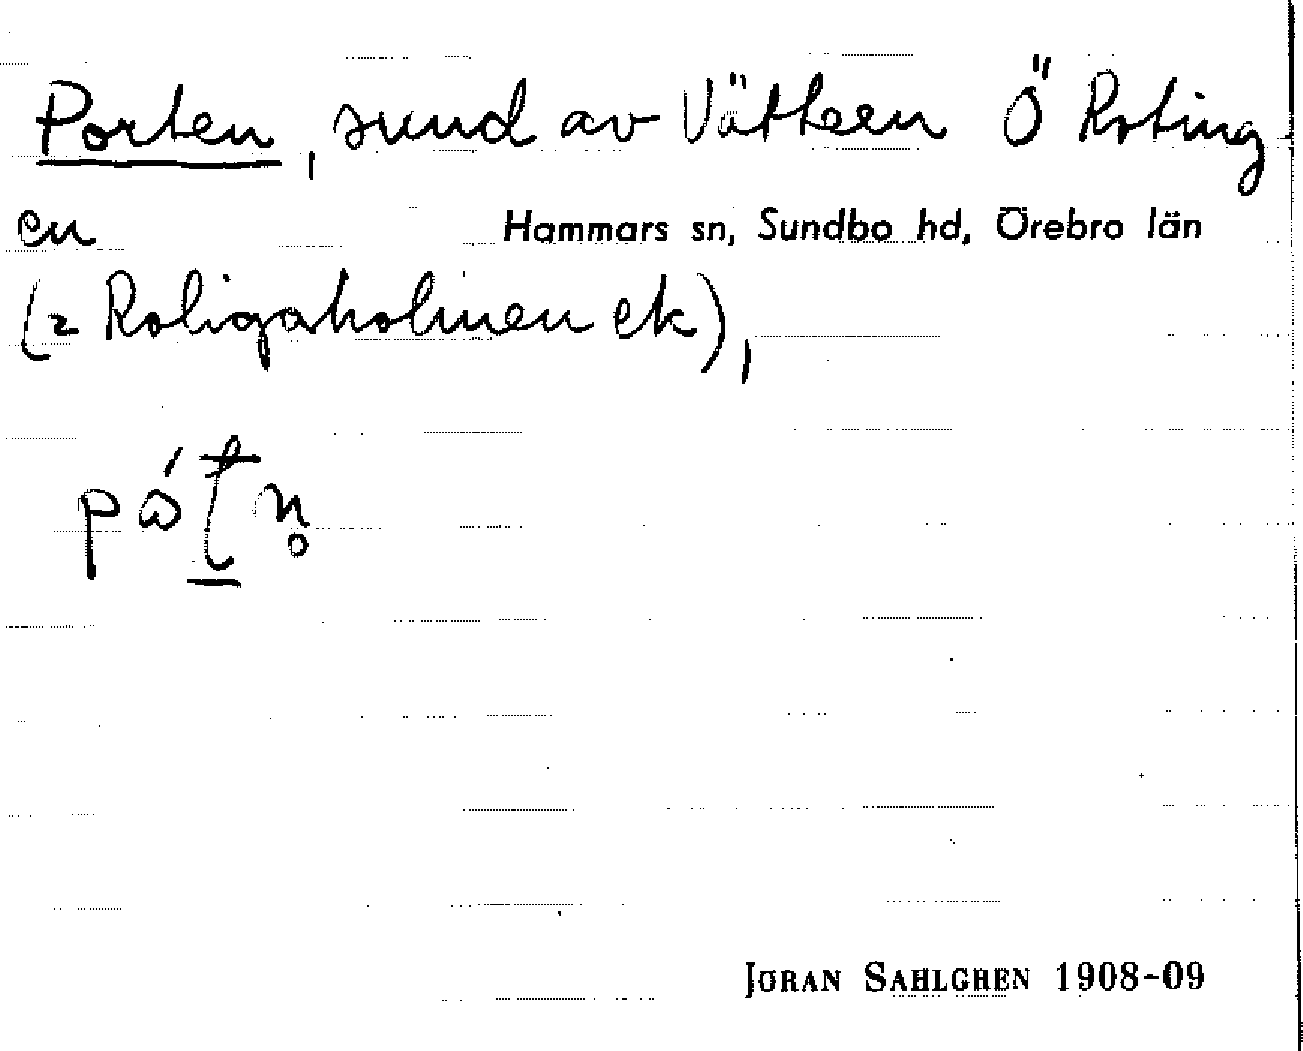 Porten, sund av Vättern Ö Roting
en
Hammars sn, Sundbo hd, Örebro län
(2 Roligaholmen ek),
JÖRAN SAHLGREN 1908-09